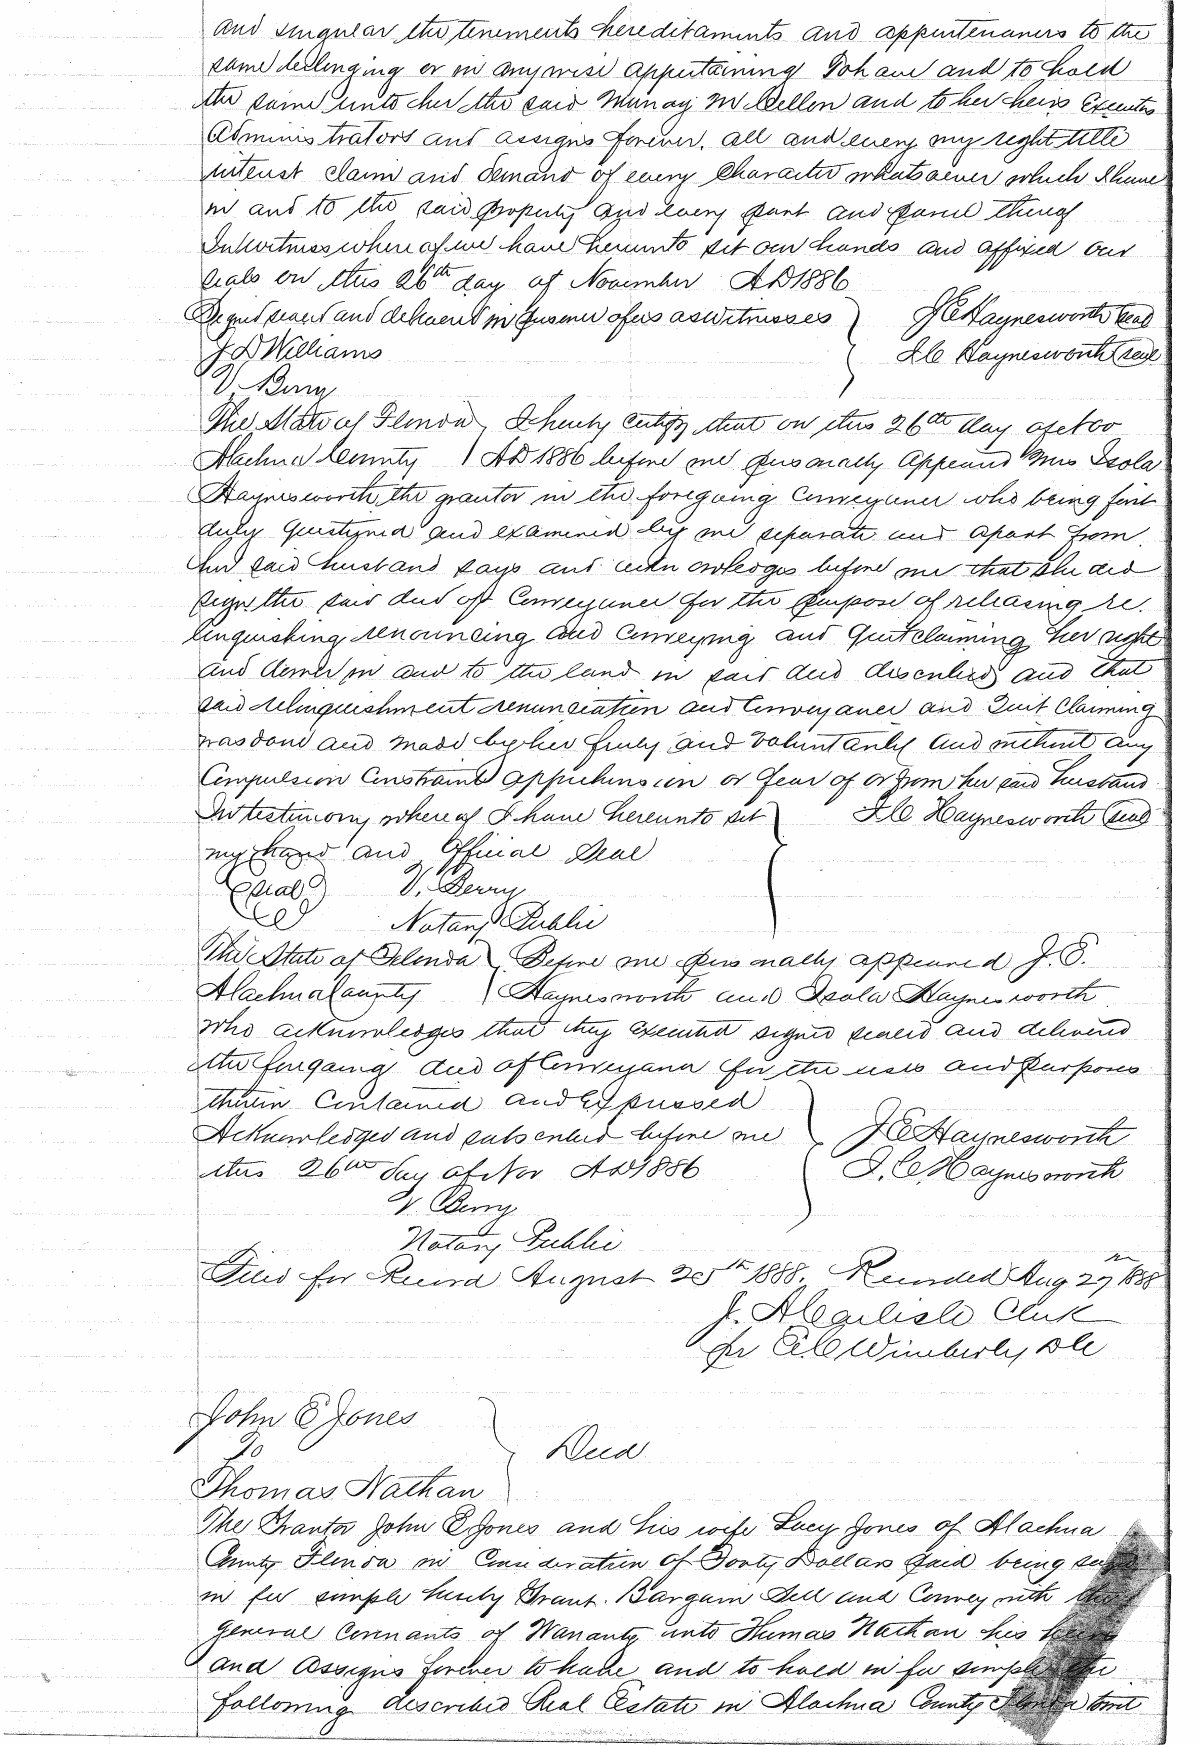 and singular the tenements hereditaments and appurtenances to the
same belonging or in anywise appertaining To have and to hold
the same unto her the said McCellon and to her heirs Executors
Administrators and assigns forever. all and every my right title
interest claim and demand of every character whatsoever which I have
in and to the said property and every part and parcel thereof
In witness whereof we have hereunto set our hands and affixed our
seals on this 26th day of November AD 1886
Signed sealed and delivered in presence of us as witnesses } J E Haynesworth (seal)
J D Williams I. C Haynesworth (seal)
V. Berry
The State of Florida } I hereby certify that on this 26th day of Nov
Alachua County } AD 1886 before me personally appeared Mrs Isola
Haynesworth the grantor in the foregoing conveyance who being first
duly questioned and examined by me separate and apart from
her said husband says and acknowledges before me that she did
sign the said deed of conveyance for the purpose of releasing re-
linquishing renouncing and conveying and Quitclaiming her right
and dower in and to the land in said deed described and that
said relinquishment renunciation and Conveyance and Quit Claiming
was done and made by her freely and voluntarily and without any
Compulsion Constraint apprehension or fear of or from her said husband
In testimony whereof I have hereunto set } I. C Haynesworth (seal)
my hand and Official Seal
(seal) V. Berry
Notary Public
The State of Florida } Before me personally appeared J. E.
Alachua County } Haynesworth and Isola Haynesworth
who acknowledges that they executed signed sealed and delivered
the forgoing deed of Conveyance for the uses and purposes
therein Contained and Expressed
Acknowledged and subscribed before me } J E Haynesworth
this 26th day of Nov AD 1886 I. C. Haynesworth
V. Berry
Notary Public
Filed for Record August 25th 1888. Recorded Aug 27th 1888
J. A Carlisle Clerk
pr C C Wimberly DC
John E Jones
To } Deed
Thomas Nathan
The Grantor John E Jones and his wife Lucy Jones of Alachua
County Florida in Consideration of Forty Dollars paid being
in fee simple hereby Grant. Bargain Sell and Convey with the
general Covenants of Warranty unto Thomas Nathan his heirs
and assigns forever to have and to hold in fee simple the
following described Real Estate in Alachua County Florida towit